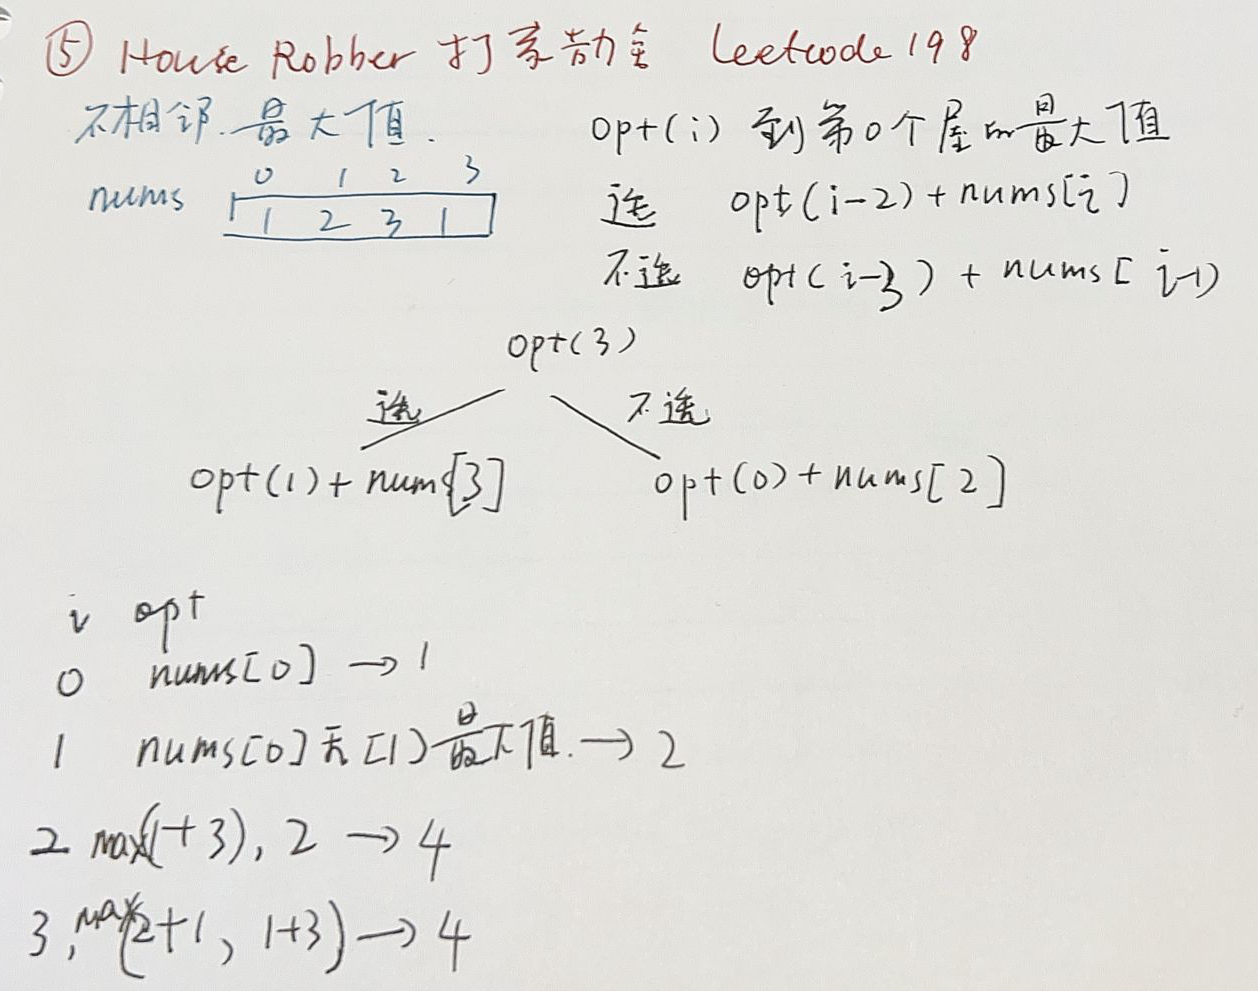 ⑤ House Robber 打家劫舍 Leetcode 198
不相邻.最大值.
nums 0 1 2 3
1 2 3 1
opt(i) 到第0个屋的最大值
选 opt(i-2)+nums[i]
不选 opt(i-3) + nums[i-1)
opt(3)
选 不选
opt(1)+nums[3] opt(0)+nums[2]
i opt
0 nums[0] → 1
1 nums[0] [1)最大值. → 2
2 max(1+3), 2 → 4
3, max(2+1, 1+3) → 4